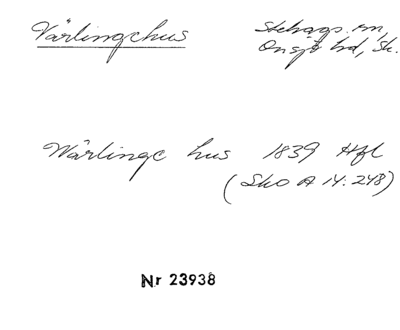 Värlingehus
Stehags sn,
Onsjö hd, Sk.
Wärlinge hus 1839 Hfl
(Sko A 14:248)
Nr 23938